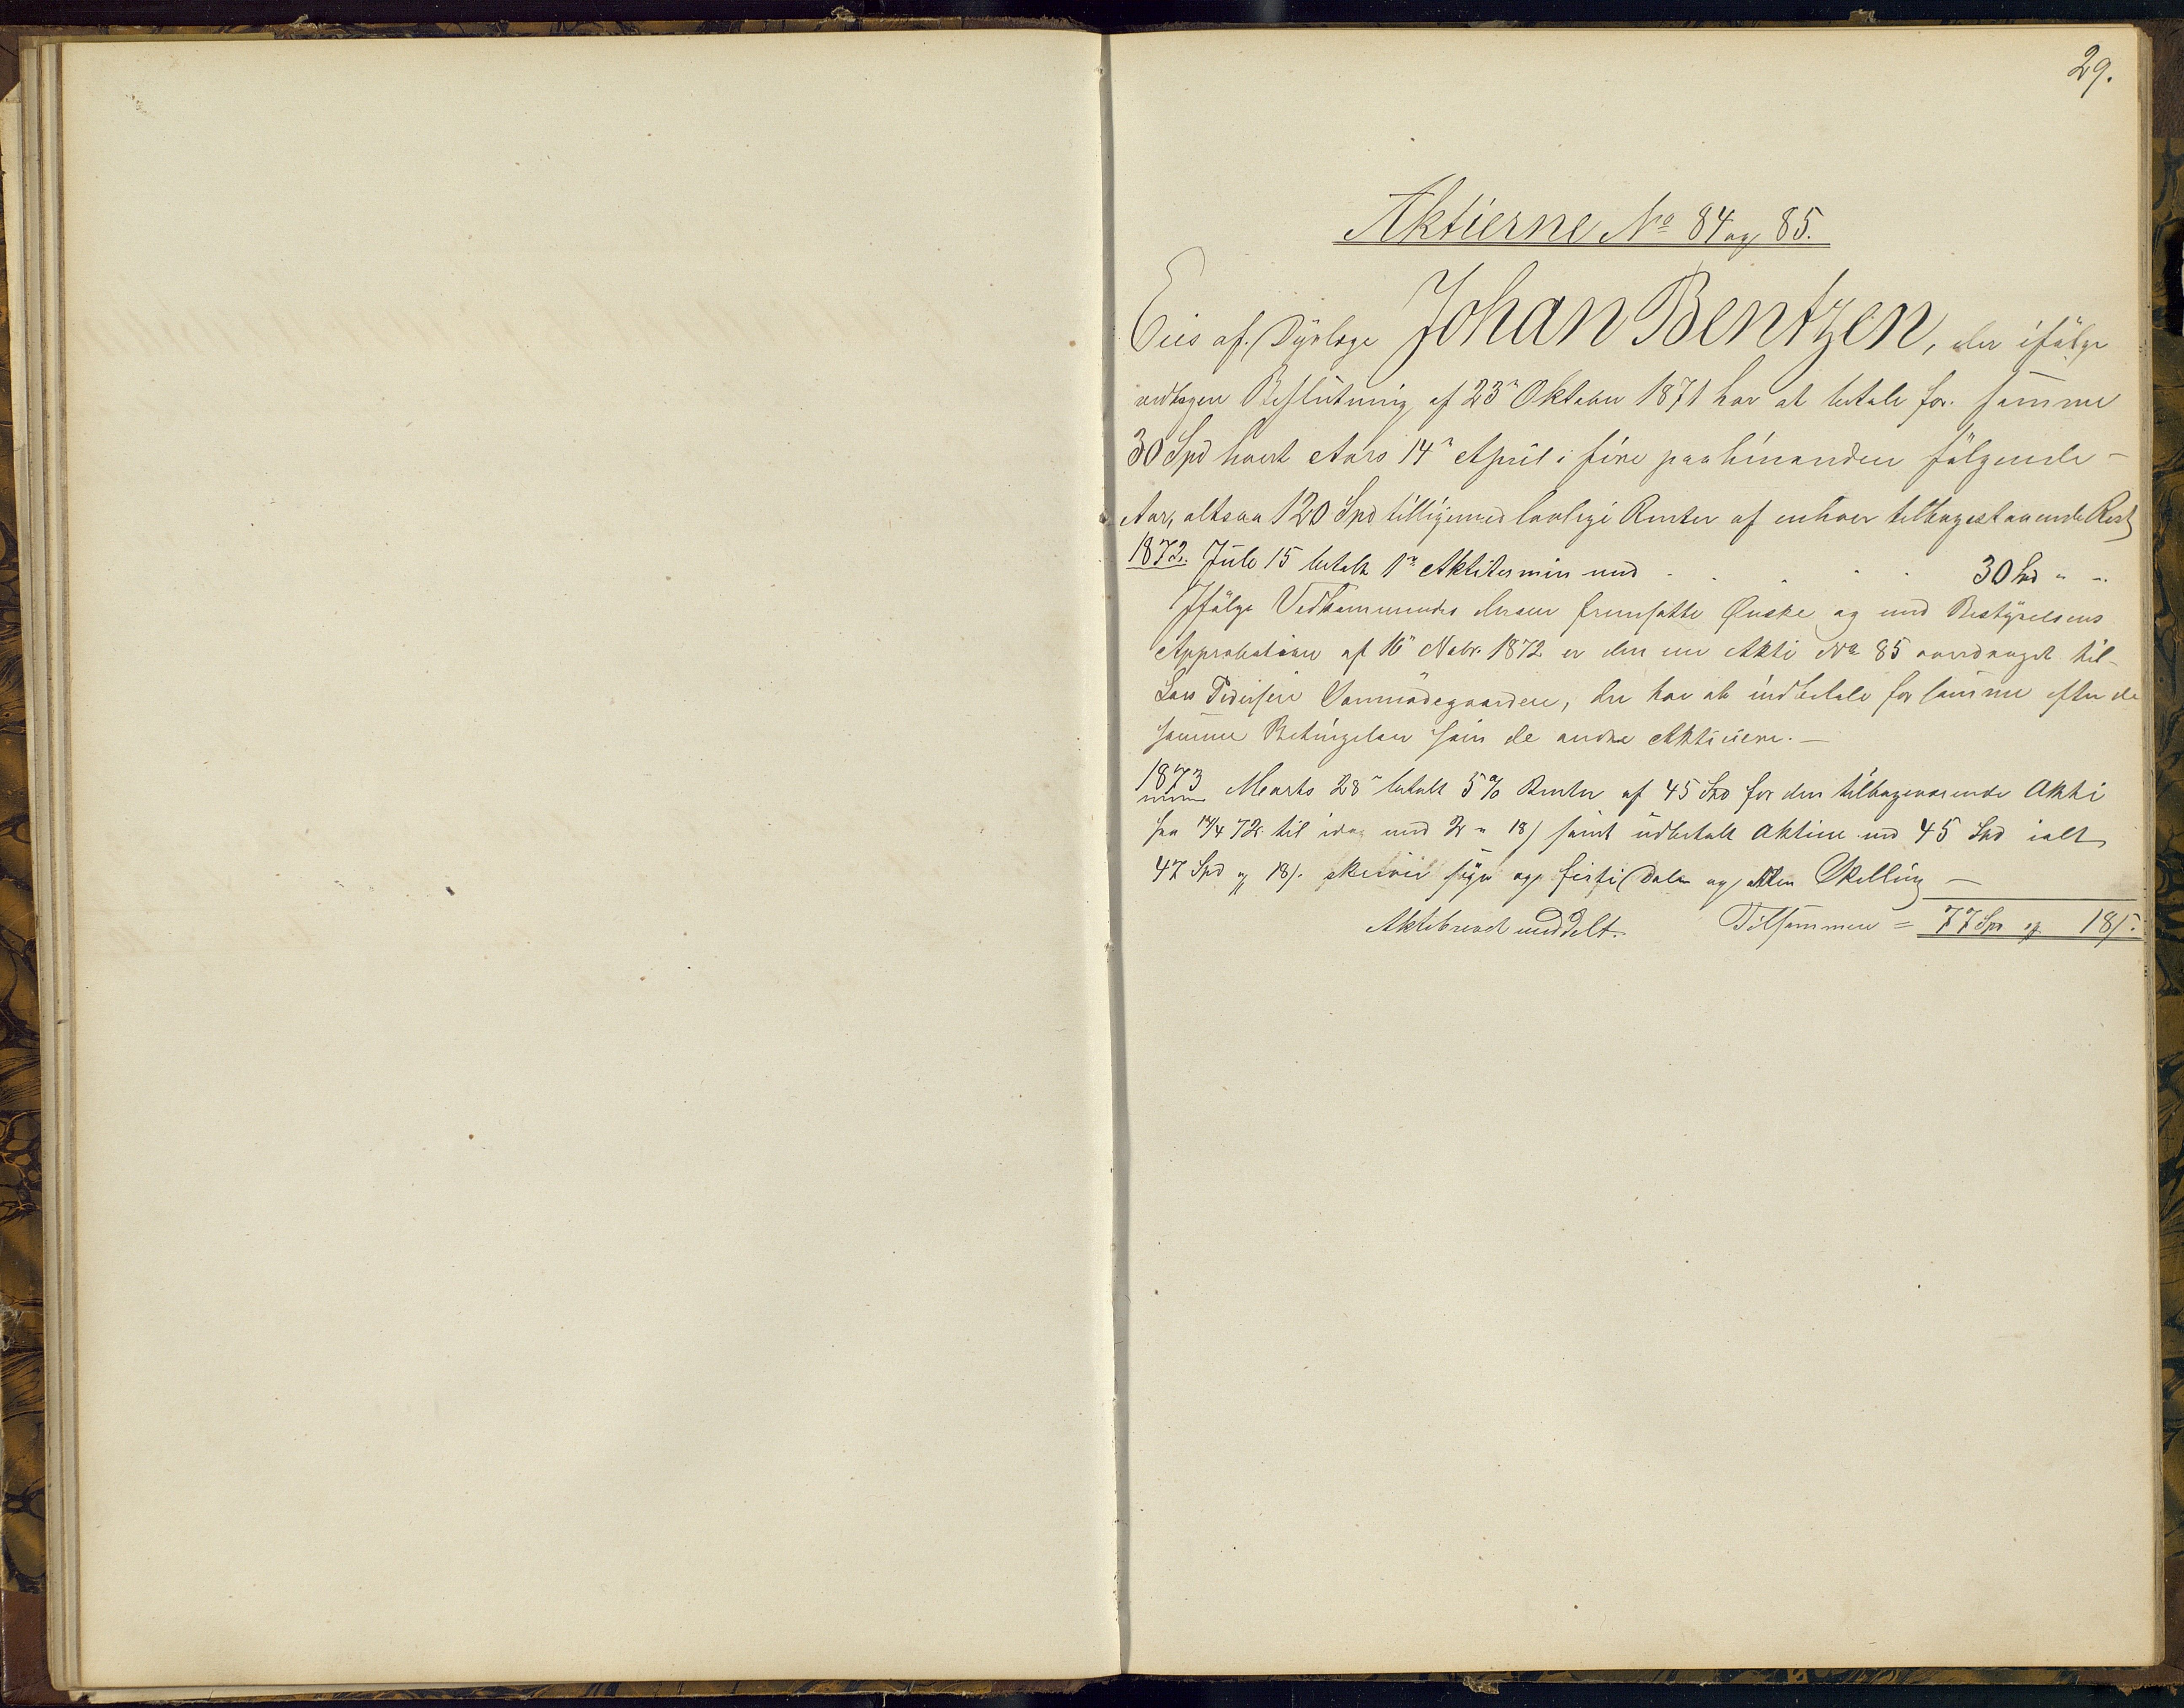 29.
Aktierne No 84 og 85.
Eies af Dyrlæge Johan Bentzen, der ifølge
vedtagen Beslutning af 23de Oktober 1871 har at betale for samme
30 Spd hvert Aars 14de April i fire paahinanden følgende
Aar, altsaa 120 Spd tilligemed lovlige Renter af enhver tilbagestaaende Rest
1872. Juli 15 betalt 1ste Aktitermin med . . . . . 30 Spd " "
Ifølge Vedkommendes derom fremsatte Ønske og med Bestyrelsens
Approbation af 16de Novbr. 1872 er den ene Akti No 85 overdraget til
Lars Pedersen, der har at indbetale for samme efter de
samme Betingelser som de andre Aktieiere.—
1873 Marts 28de betalt 5% Renter af 45 Spd for den tilbageværende Akti
fra 14/4 72 til idag med 2 " 18/ samt udbetalt Aktien med 45 Spd ialt
47 Spd og 18/. skriver syv og firti Daler og atten Skilling —
Aktibrevet meddelt. Tilsammen = 77 Spd og 18/.